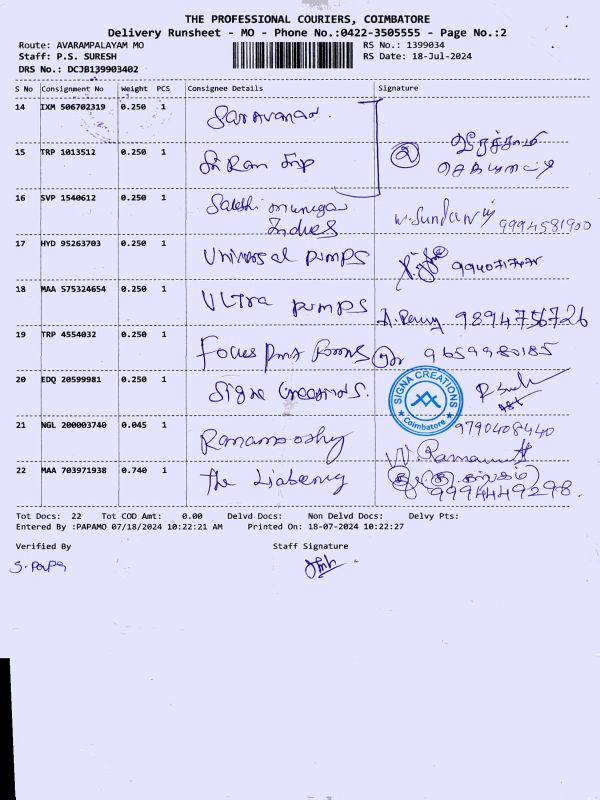 THE PROFESSIONAL COURIERS, COIMBATORE
Delivery Runsheet - MO - Phone No.:0422-3505555 - Page No.:2
Route: AVARAMPALAYAM MO RS No.: 1399034
Staff: P.S. SURESH RS Date: 18-Jul-2024
DRS No.: DCJB139903402
S No Consignment No Weight PCS Consignee Details Signature
14 IXM 506702319 0.250 1 Saravanan.
15 TRP 1013512 0.250 1 Sri Ram Imp
16 SVP 1540612 0.250 1 Sakthi murugan
Indus 9994581900
17 HYD 95263703 0.250 1 Universal pumps
18 MAA 575324654 0.250 1 ULtra pumps 9894756726
19 TRP 4554032 0.250 1 Focus 9659980185
20 EDQ 20599981 0.250 1 Signa Creations.
SIGNA CREATIONS
Coimbatore
21 NGL 200003740 0.045 1 Ramamoorthy 9790408440
22 MAA 703971938 0.740 1 The 9994449298.
Tot Docs: 22 Tot COD Amt: 0.00 Delvd Docs: Non Delvd Docs: Delvy Pts:
Entered By :PAPAMO 07/18/2024 10:22:21 AM Printed On: 18-07-2024 10:22:27
Verified By Staff Signature
S. Papa